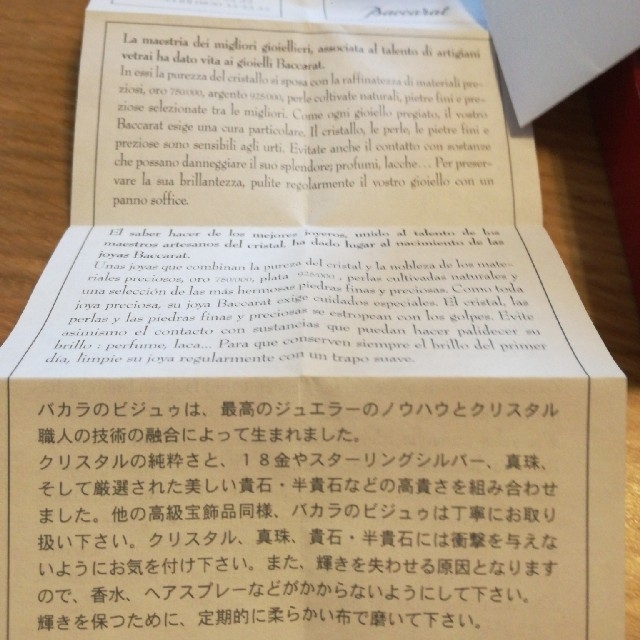 Baccarat
La maestria dei migliori gioiellieri, associata al talento di artigiani
vetrai ha dato vita ai gioielli Baccarat.
In essi la purezza del cristallo si sposa con la raffinatezza di materiali pre-
ziosi, oro 750/000, argento 925/000, perle coltivate naturali, pietre fini e pre-
ziose selezionate tra le migliori. Come ogni gioiello pregiato, il vostro
Baccarat esige una cura particolare. Il cristallo, le perle, le pietre fini e
preziose sono sensibili agli urti. Evitate anche il contatto con sostanze
che possano danneggiare il suo splendore; profumi, lacche... Per preser-
vare la sua brillantezza, pulite regolarmente il vostro gioiello con un
panno soffice.
El saber hacer de los mejores joyeros, unido al talento de los
maestros artesanos del cristal, ha dado lugar al nacimiento de las
joyas Baccarat.
Unas joyas que combinan la pureza del cristal y la nobleza de los mate-
riales preciosos, oro 750/000, plata 925/000, perlas cultivadas naturales y
una selección de las más hermosas piedras finas y preciosas. Como toda
joya preciosa, su joya Baccarat exige cuidados especiales. El cristal, las
perlas y las piedras finas y preciosas se estropean con los golpes. Evite
asimismo el contacto con sustancias que puedan hacer palidecer su
brillo : perfume, laca... Para que conserven siempre el brillo del primer
día, limpie su joya regularmente con un trapo suave.
バカラのビジュゥは、最高のジュエラーのノウハウとクリスタル
職人の技術の融合によって生まれました。
クリスタルの純粋さと、１８金やスターリングシルバー、真珠、
そして厳選された美しい貴石・半貴石などの高貴さを組み合わせ
ました。他の高級宝飾品同様、バカラのビジュゥは丁寧にお取り
扱い下さい。クリスタル、真珠、貴石・半貴石には衝撃を与えな
いようにお気を付け下さい。また、輝きを失わせる原因となります
ので、香水、ヘアスプレーなどがかからないようにして下さい。
輝きを保つために、定期的に柔らかい布で磨いて下さい。